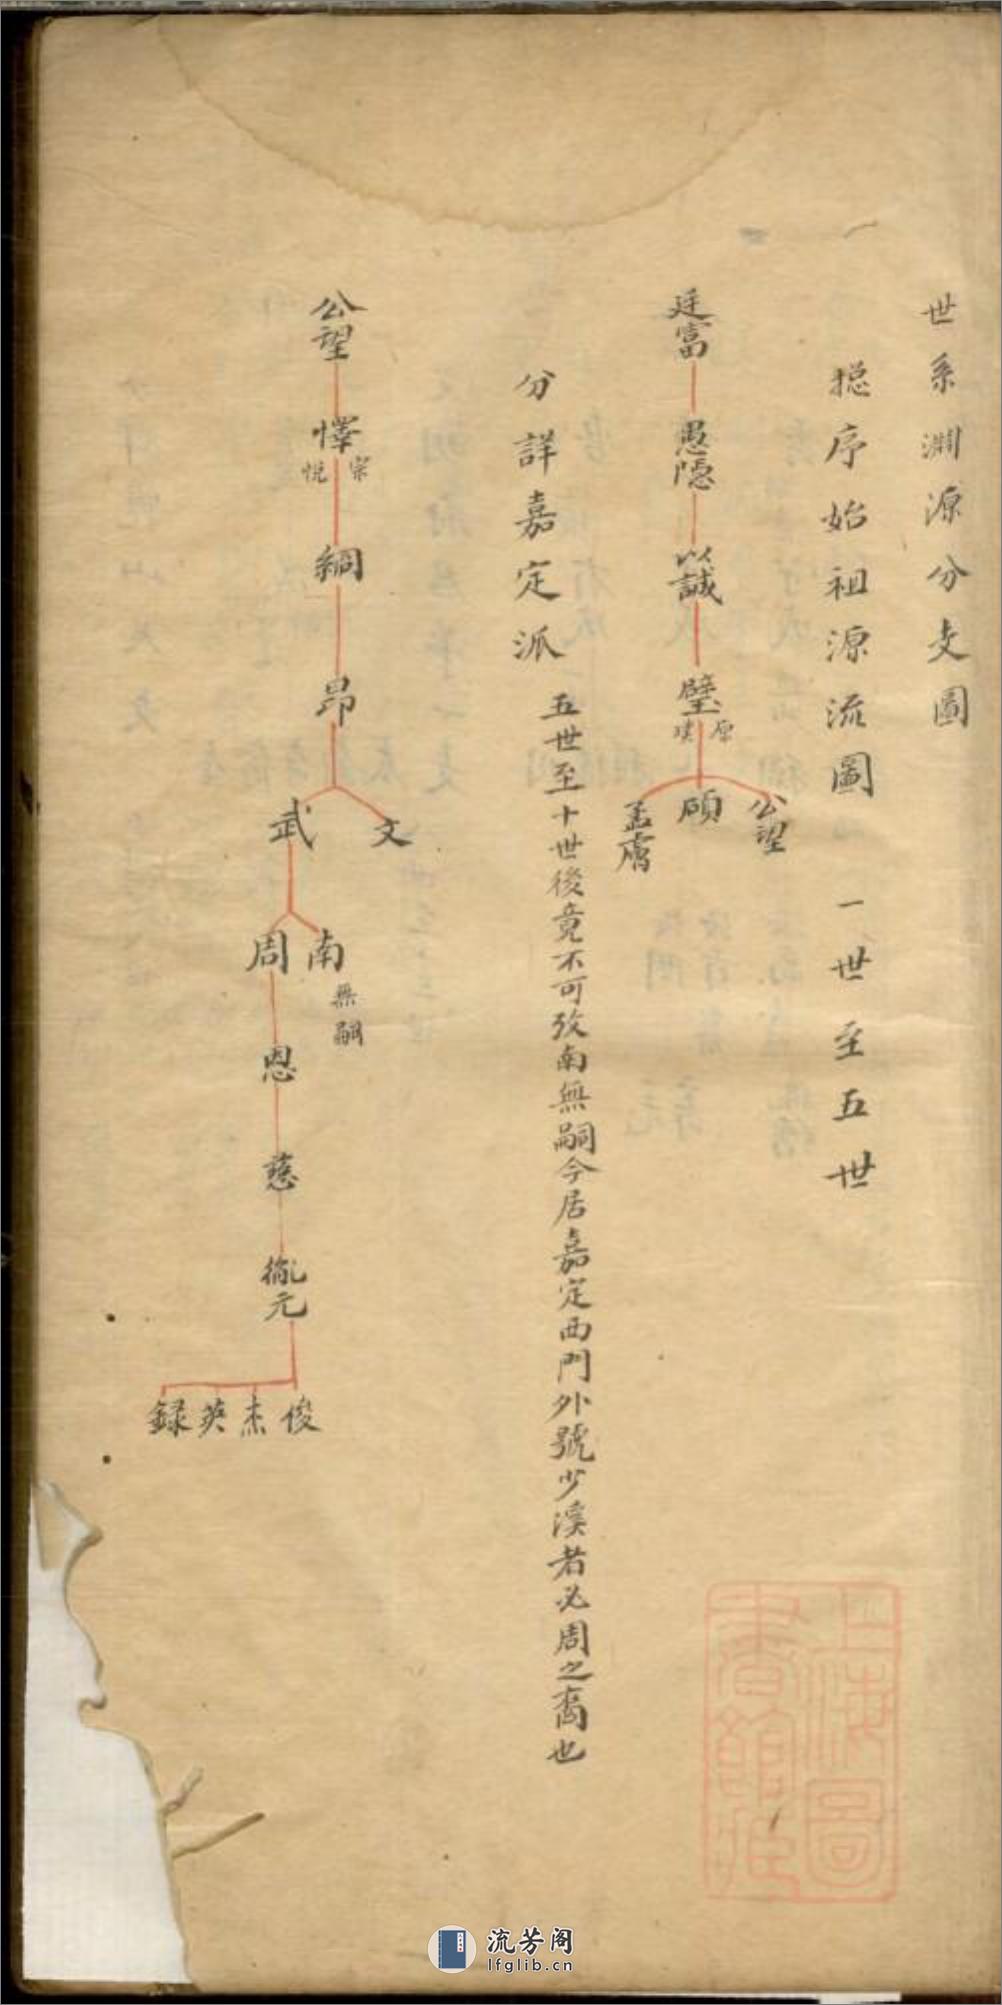 世系淵源分支圖
揔序始祖源流圖 一世至五世
廷富
愚隱
以誠
璧 原璞
公望 碩 孟膚
分詳嘉定派 五世至十世後竟不可攷南無嗣今居嘉定西門外號少溪者必周之裔也
公望
懌 宗悅
綱
昂
文 武
南 無嗣 周
恩
慈
胤元
俊 杰 英 録
上海圖書館藏
流芳阁
lfglib.cn